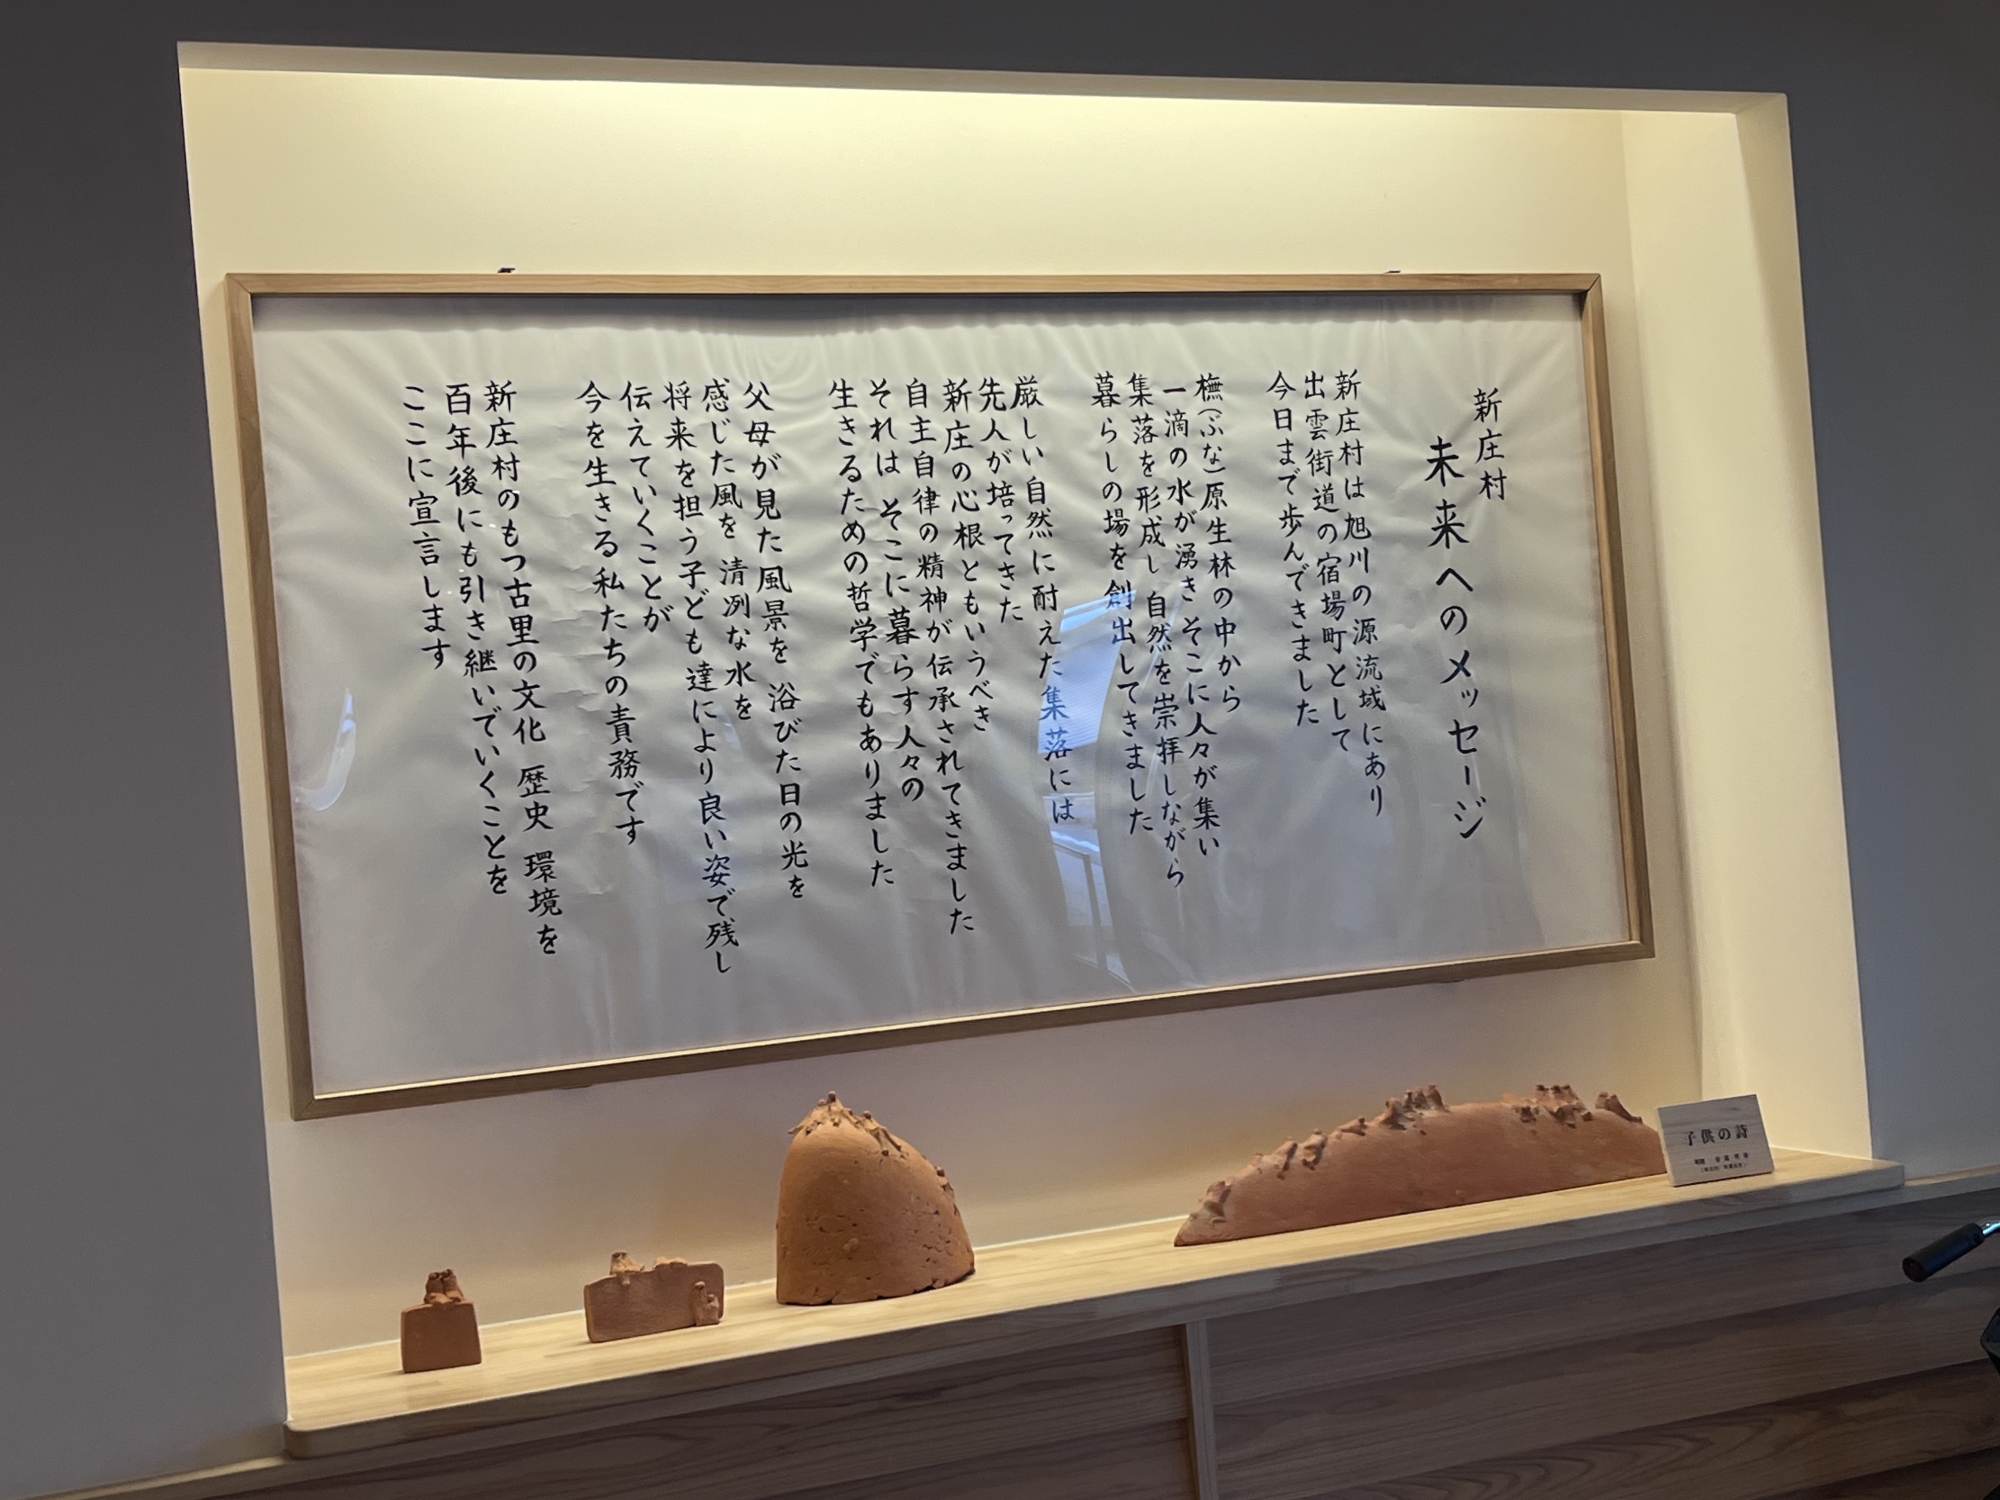 新庄村
未来へのメッセージ
新庄村は旭川の源流域にあり
出雲街道の宿場町として
今日まで歩んできました
橅(ぶな)原生林の中から
一滴の水が湧き そこに人々が集い
集落を形成し 自然を崇拝しながら
暮らしの場を創出してきました
厳しい自然に耐えた集落には
先人が培ってきた
新庄の心根ともいうべき
自主自律の精神が伝承されてきました
それは そこに暮らす人々の
生きるための哲学でもありました
父母が見た風景を 浴びた日の光を
感じた風を 清冽な水を
将来を担う子ども達により良い姿で残し
伝えていくことが
今を生きる私たちの責務です
新庄村のもつ古里の文化 歴史 環境を
百年後にも引き継いでいくことを
ここに宣言します
子供の詩